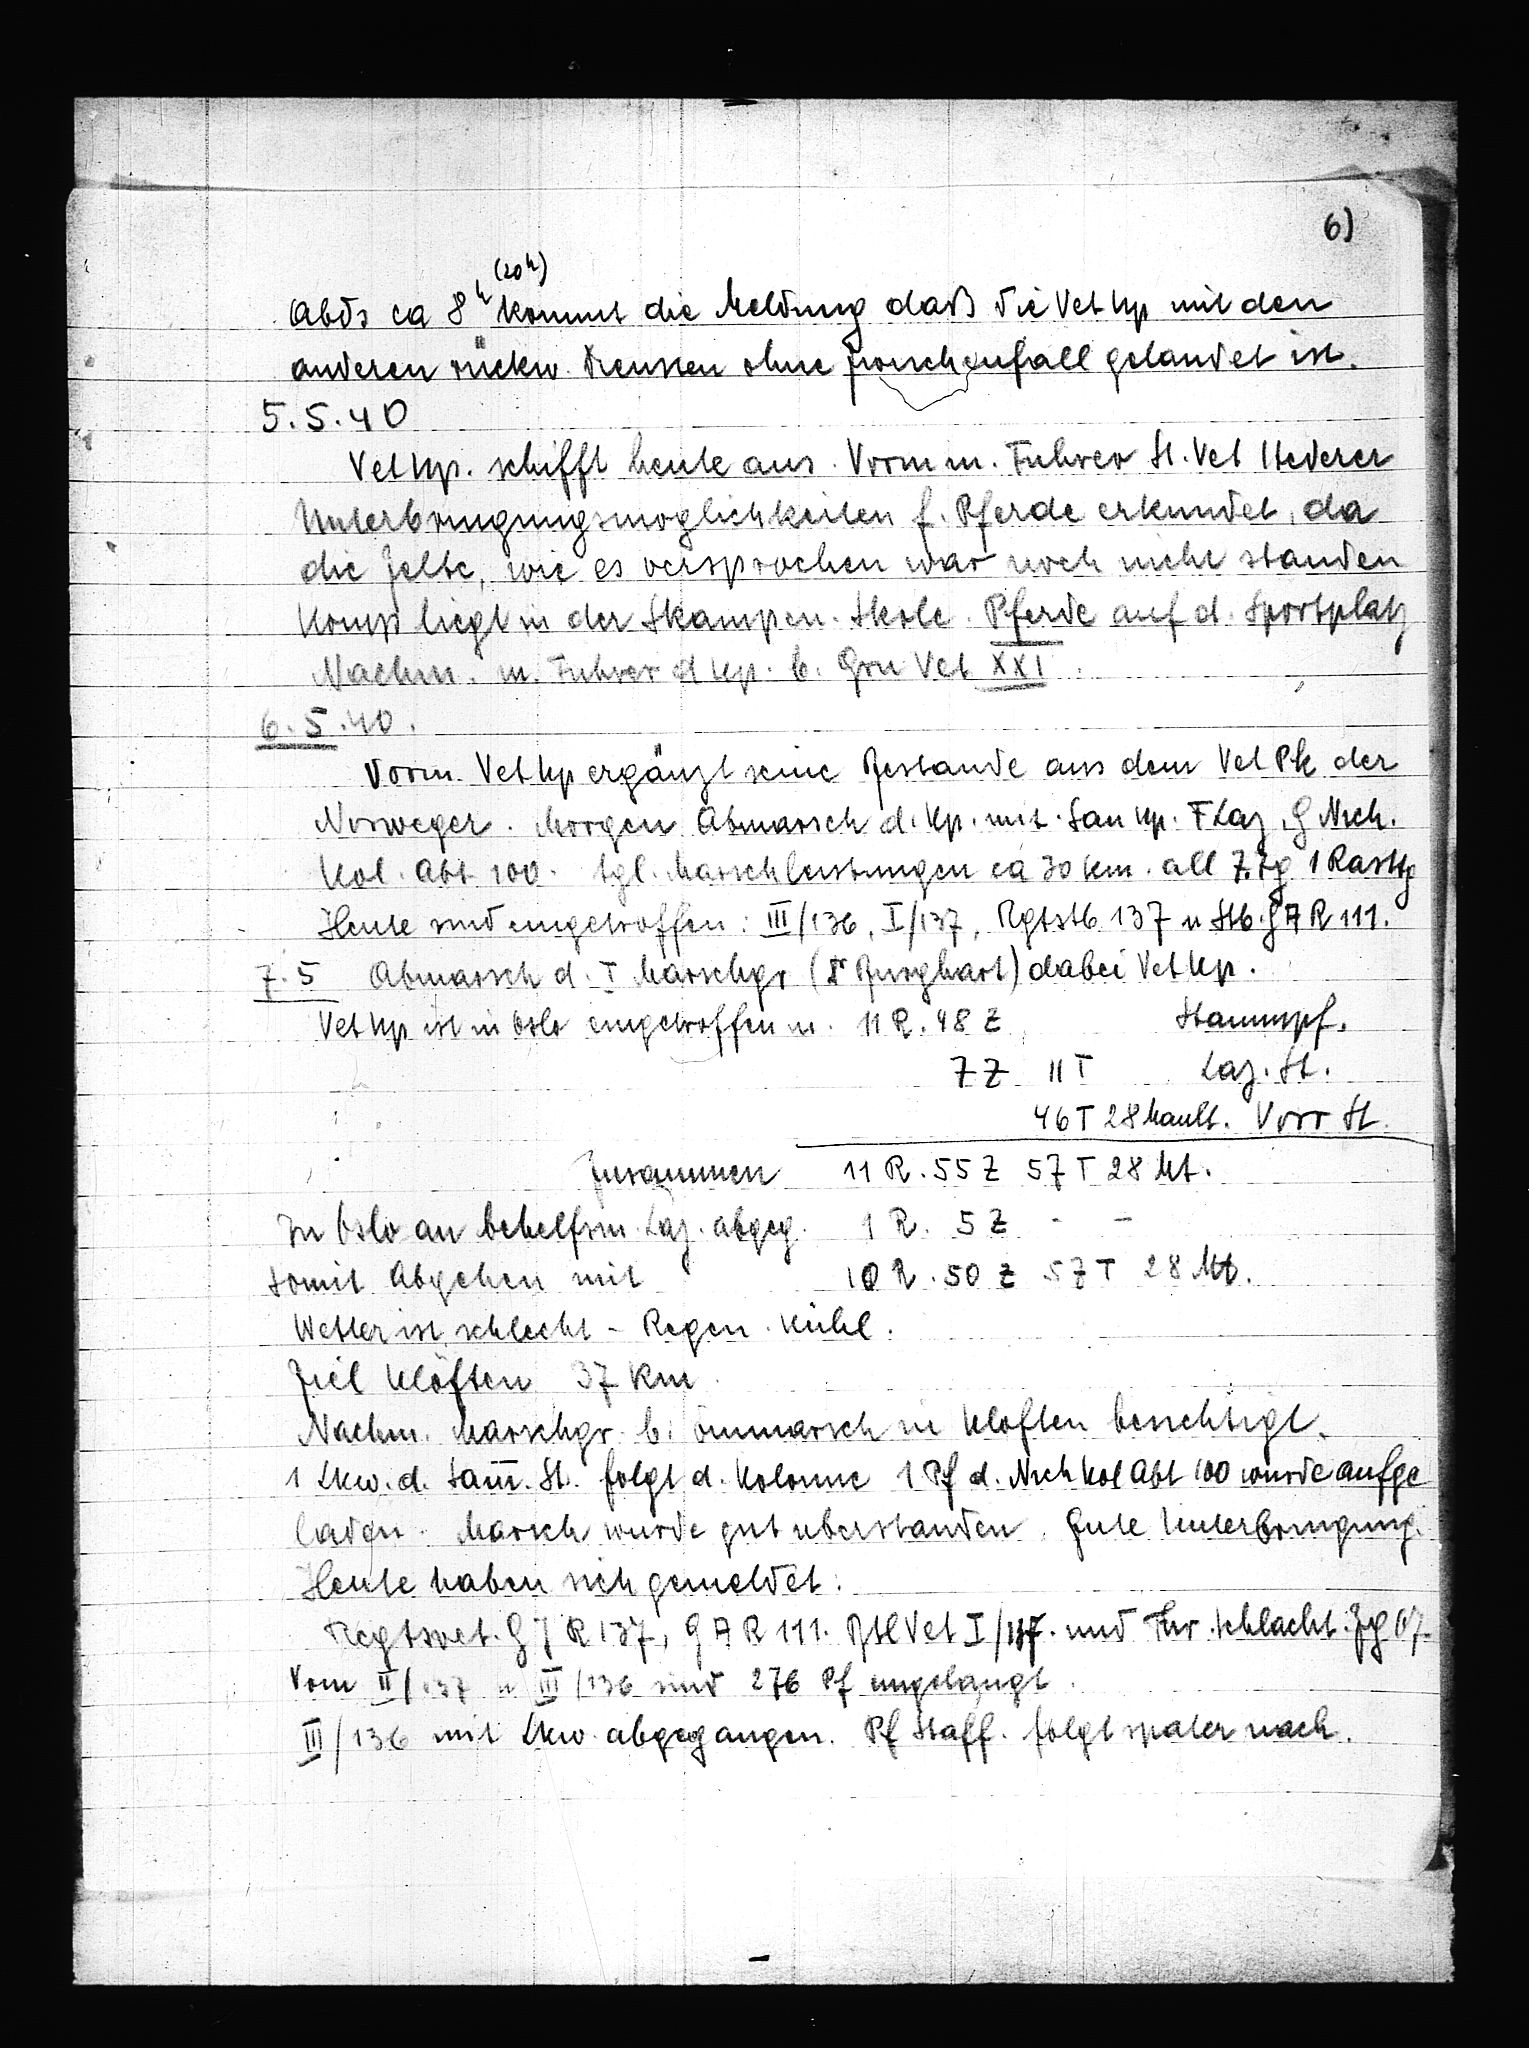 6)
(20h)
Abds ca 8h kommt die Meldung daß die Vet Kp mit den
anderen rückw. Diensten ohne Zwischenfall gelandet ist.
5.5.40
Vet Kp. schifft heute aus. Vorm m. Führer St. Vet Hederer
Unterbringungsmöglichkeiten f. Pferde erkundet, da
die Zelte, wie es versprochen war noch nicht standen
Komp liegt in der Skampen. Skole. Pferde auf d. Sportplatz
Nachm. m. Führer d Kp. b. Gru Vet XXI.
6.5.40.
Vorm. Vet Kp ergänzt seine Bestände aus dem Vet Pk der
Norweger. Morgen Abmarsch d. Kp. mit San Kp. F Laz, G Nsch.
Kol. Abt 100. tgl. Marschleistungen ca 30 km. all 7. Tg 1 Rasttg
Heute sind eingetroffen: III/136, I/137, Rgtstb 137 u Stb. G A R 111.
7.5 Abmarsch d. I Marschgr (Dr Burghart) dabei Vet Kp.
Vet Kp ist in Oslo eingetroffen m. 11 R. 48 Z Stammpf.
7 Z 11 T Laz. St.
46 T 28 Mault. Vorr St.
Zusammen 11 R. 55 Z 57 T 28 Mt.
In Oslo an behelfsm. Laz. abgeg. 1 R. 5 Z - -
Somit Abgehen mit 10 R. 50 Z 57 T 28 Mt.
Wetter ist schlecht - Regen. Kühl.
Ziel Klöften 37 Km
Nachm. Marschgr. b. Einmarsch in Klöften besichtigt.
1 Lkw. d. Sam. St. folgt d. Kolonne 1 Pf d. Nsch Kol Abt 100 wurde aufge
laden. Marsch wurde gut überstanden. Gute Unterbringung.
Heute haben sich gemeldet:
Regtsvet. G J R 137, G A R 111. Btl Vet I/137. und Fhr. Schlacht. Zg 67.
Vom II/137 u III/136 sind 276 Pf eingelangt.
III/136 mit Lkw. abgegangen. Pf Staff. folgt später nach.